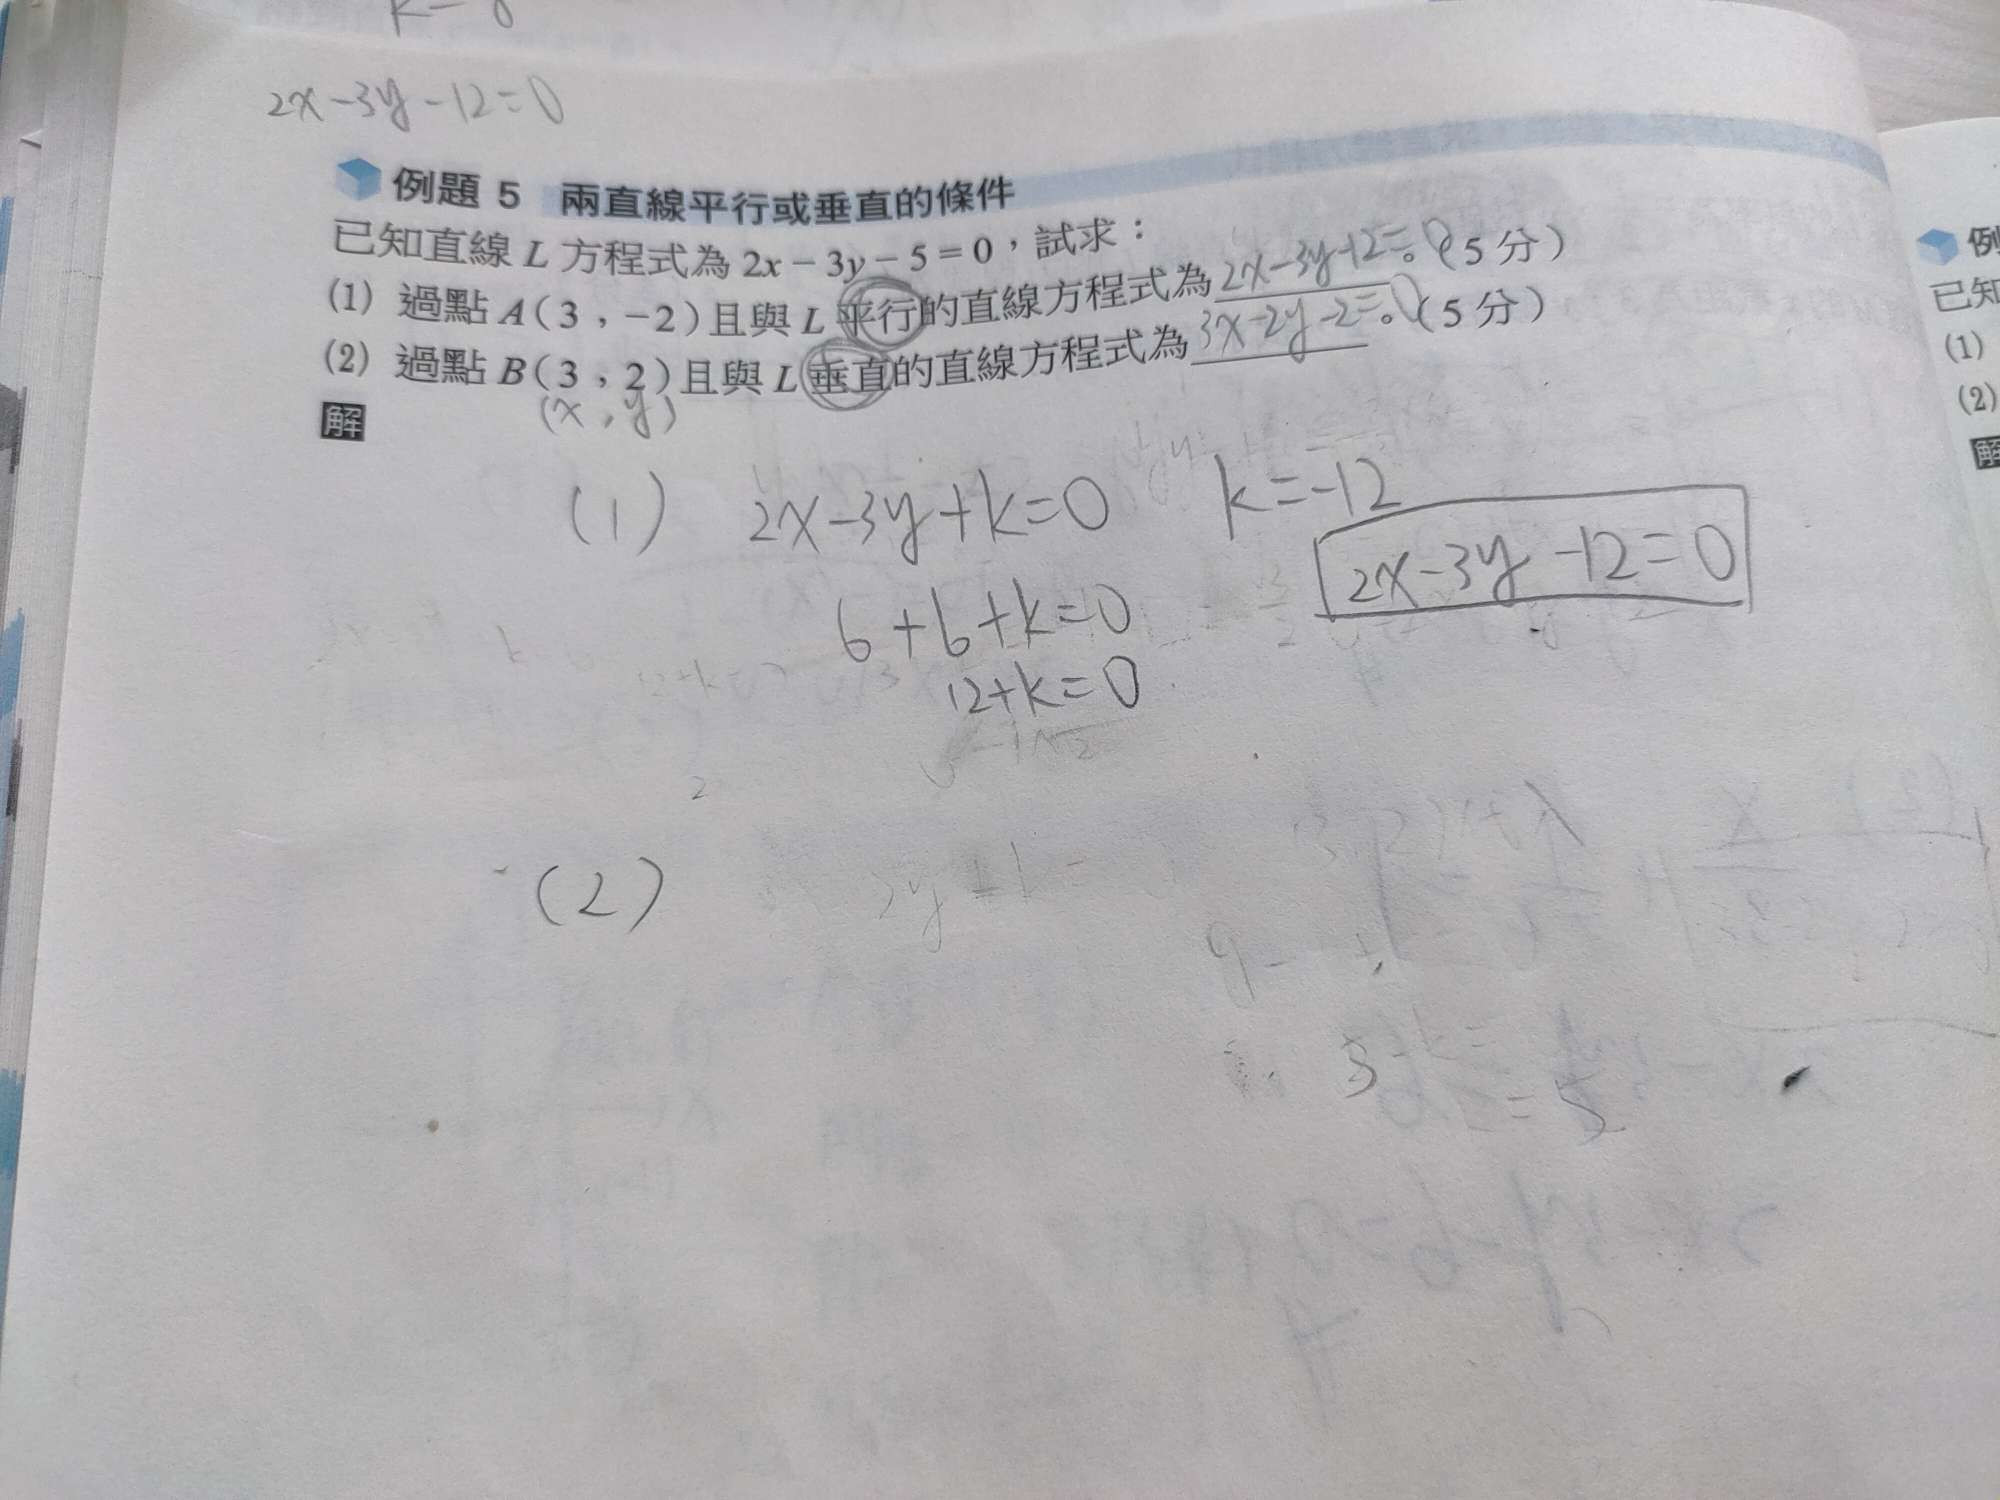 2x-3y-12=0
例題 5 兩直線平行或垂直的條件
已知直線 L 方程式為 2x-3y-5=0，試求：
(1) 過點 A(3，-2)且與 L 平行的直線方程式為 2x-3y-12=0。(5 分)
(2) 過點 B(3，2)且與 L 垂直的直線方程式為 3x-2y-2=0。(5 分)
(x,y)
解
(1) 2x-3y+k=0 k=-12
2x-3y-12=0
6+6+k=0
12+k=0
(2)
例
已知
(1)
(2)
解